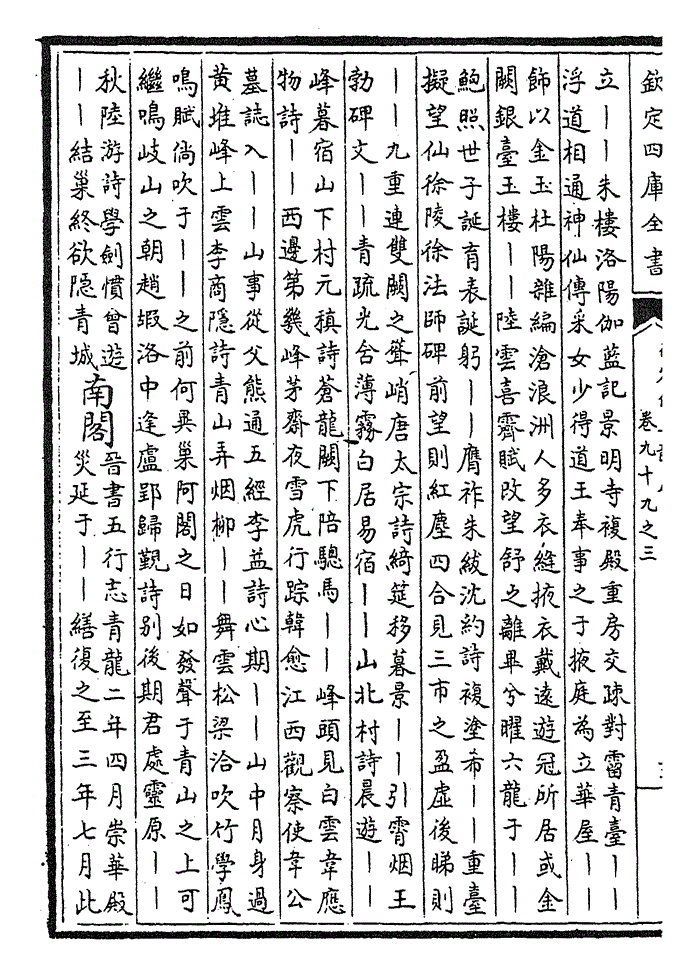 欽定四庫全書
卷九十九之三
立——朱樓洛陽伽藍記景明寺複殿重房交疎對霤青臺——
浮道相通神仙傳采女少得道王奉事之于掖庭為立華屋——
飾以金玉杜陽雜編滄浪洲人多衣縫掖衣戴遠遊冠所居或金
闕銀臺玉樓——陸雲喜霽賦改望舒之離畢兮曜六龍于——
鮑照世子誕育表誕躬——膺祚朱紱沈約詩複塗希——重臺
擬望仙徐陵徐法師碑前望則紅塵四合見三市之盈虛後睇則
——九重連雙闕之聳峭唐太宗詩綺筵移暮景——引霄烟王
勃碑文——青疏光含薄霧白居易宿——山北村詩晨遊——
峰暮宿山下村元稹詩蒼龍闕下陪驄馬——峰頭見白雲韋應
物詩——西邊第幾峰茅齋夜雪虎行踪韓愈江西觀察使韋公
墓誌入——山事從父熊通五經李益詩心期——山中月身過
黃堆峰上雲李商隱詩青山弄烟柳——舞雲松梁洽吹竹學鳳
鳴賦倘吹于——之前何異巢阿閣之日如發聲于青山之上可
繼鳴岐山之朝趙嘏洛中逢盧郢歸覲詩別後期君處靈原——
秋陸游詩學劍慣曾遊
——結巢終欲隐青城
南閣
晉書五行志青龍二年四月崇華殿
災延于——繕復之至三年七月此